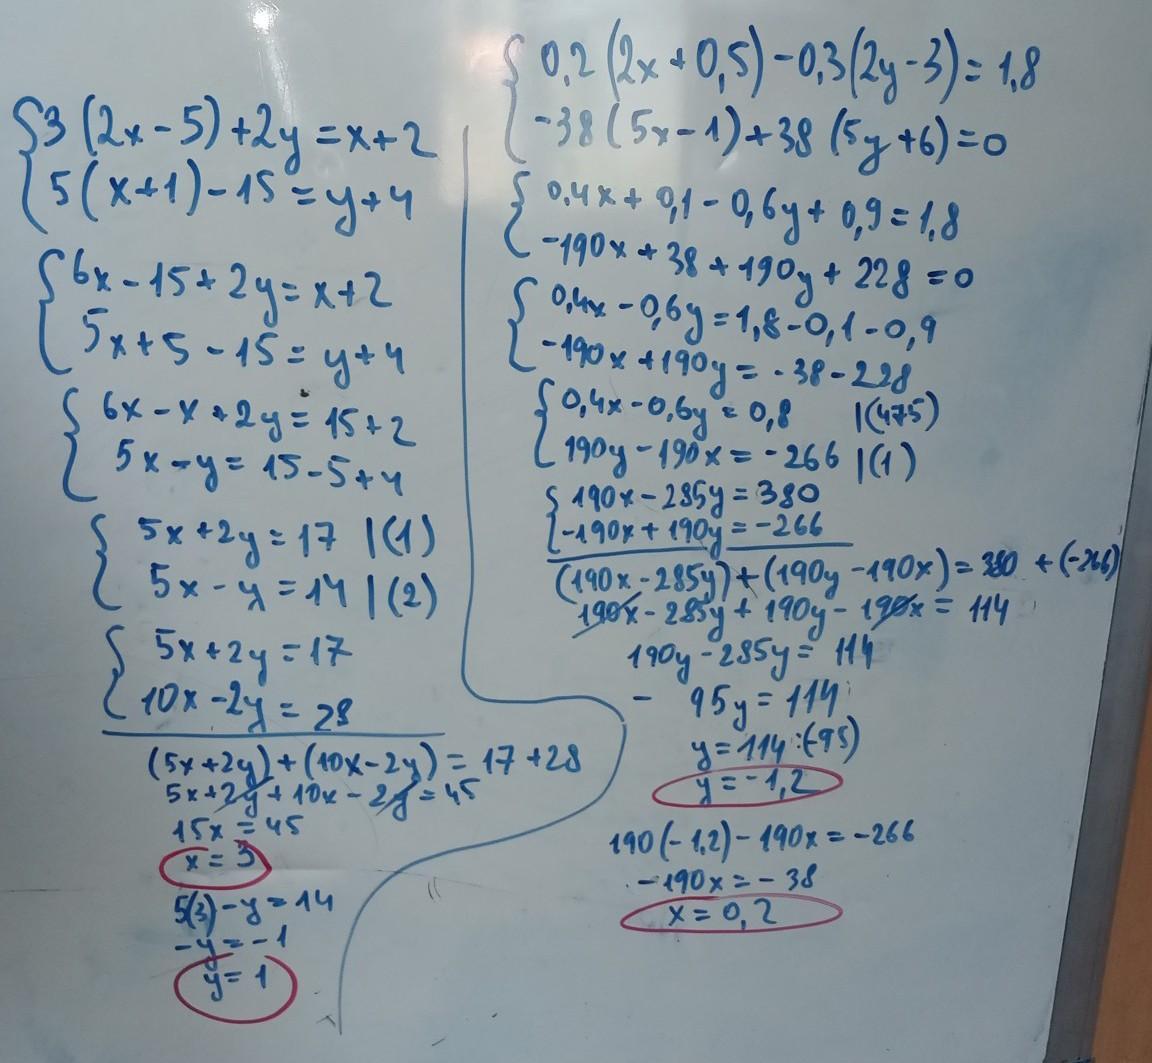 3(2x-5)+2y=x+2
5(x+1)-15=y+4
6x-15+2y=x+2
5x+5-15=y+4
6x-x+2y=15+2
5x-y=15-5+4
5x+2y=17 |(1)
5x-y=14 |(2)
5x+2y=17
10x-2y=28
(5x+2y)+(10x-2y)=17+28
5x+2y+10x-2y=45
15x=45
x=3
5(3)-y=14
-y=-1
y=1
0,2(2x+0,5)-0,3(2y-3)=1,8
-38(5x-1)+38(5y+6)=0
0,4x+0,1-0,6y+0,9=1,8
-190x+38+190y+228=0
0,4x-0,6y=1,8-0,1-0,9
-190x+190y=-38-228
0,4x-0,6y=0,8 |(475)
190y-190x=-266 |(1)
190x-285y=380
-190x+190y=-266
(190x-285y)+(190y-190x)=380+(-266)
190x-285y+190y-190x=114
190y-285y=114
-95y=114
y=114:(-95)
y=-1,2
190(-1,2)-190x=-266
-190x=-38
x=0,2